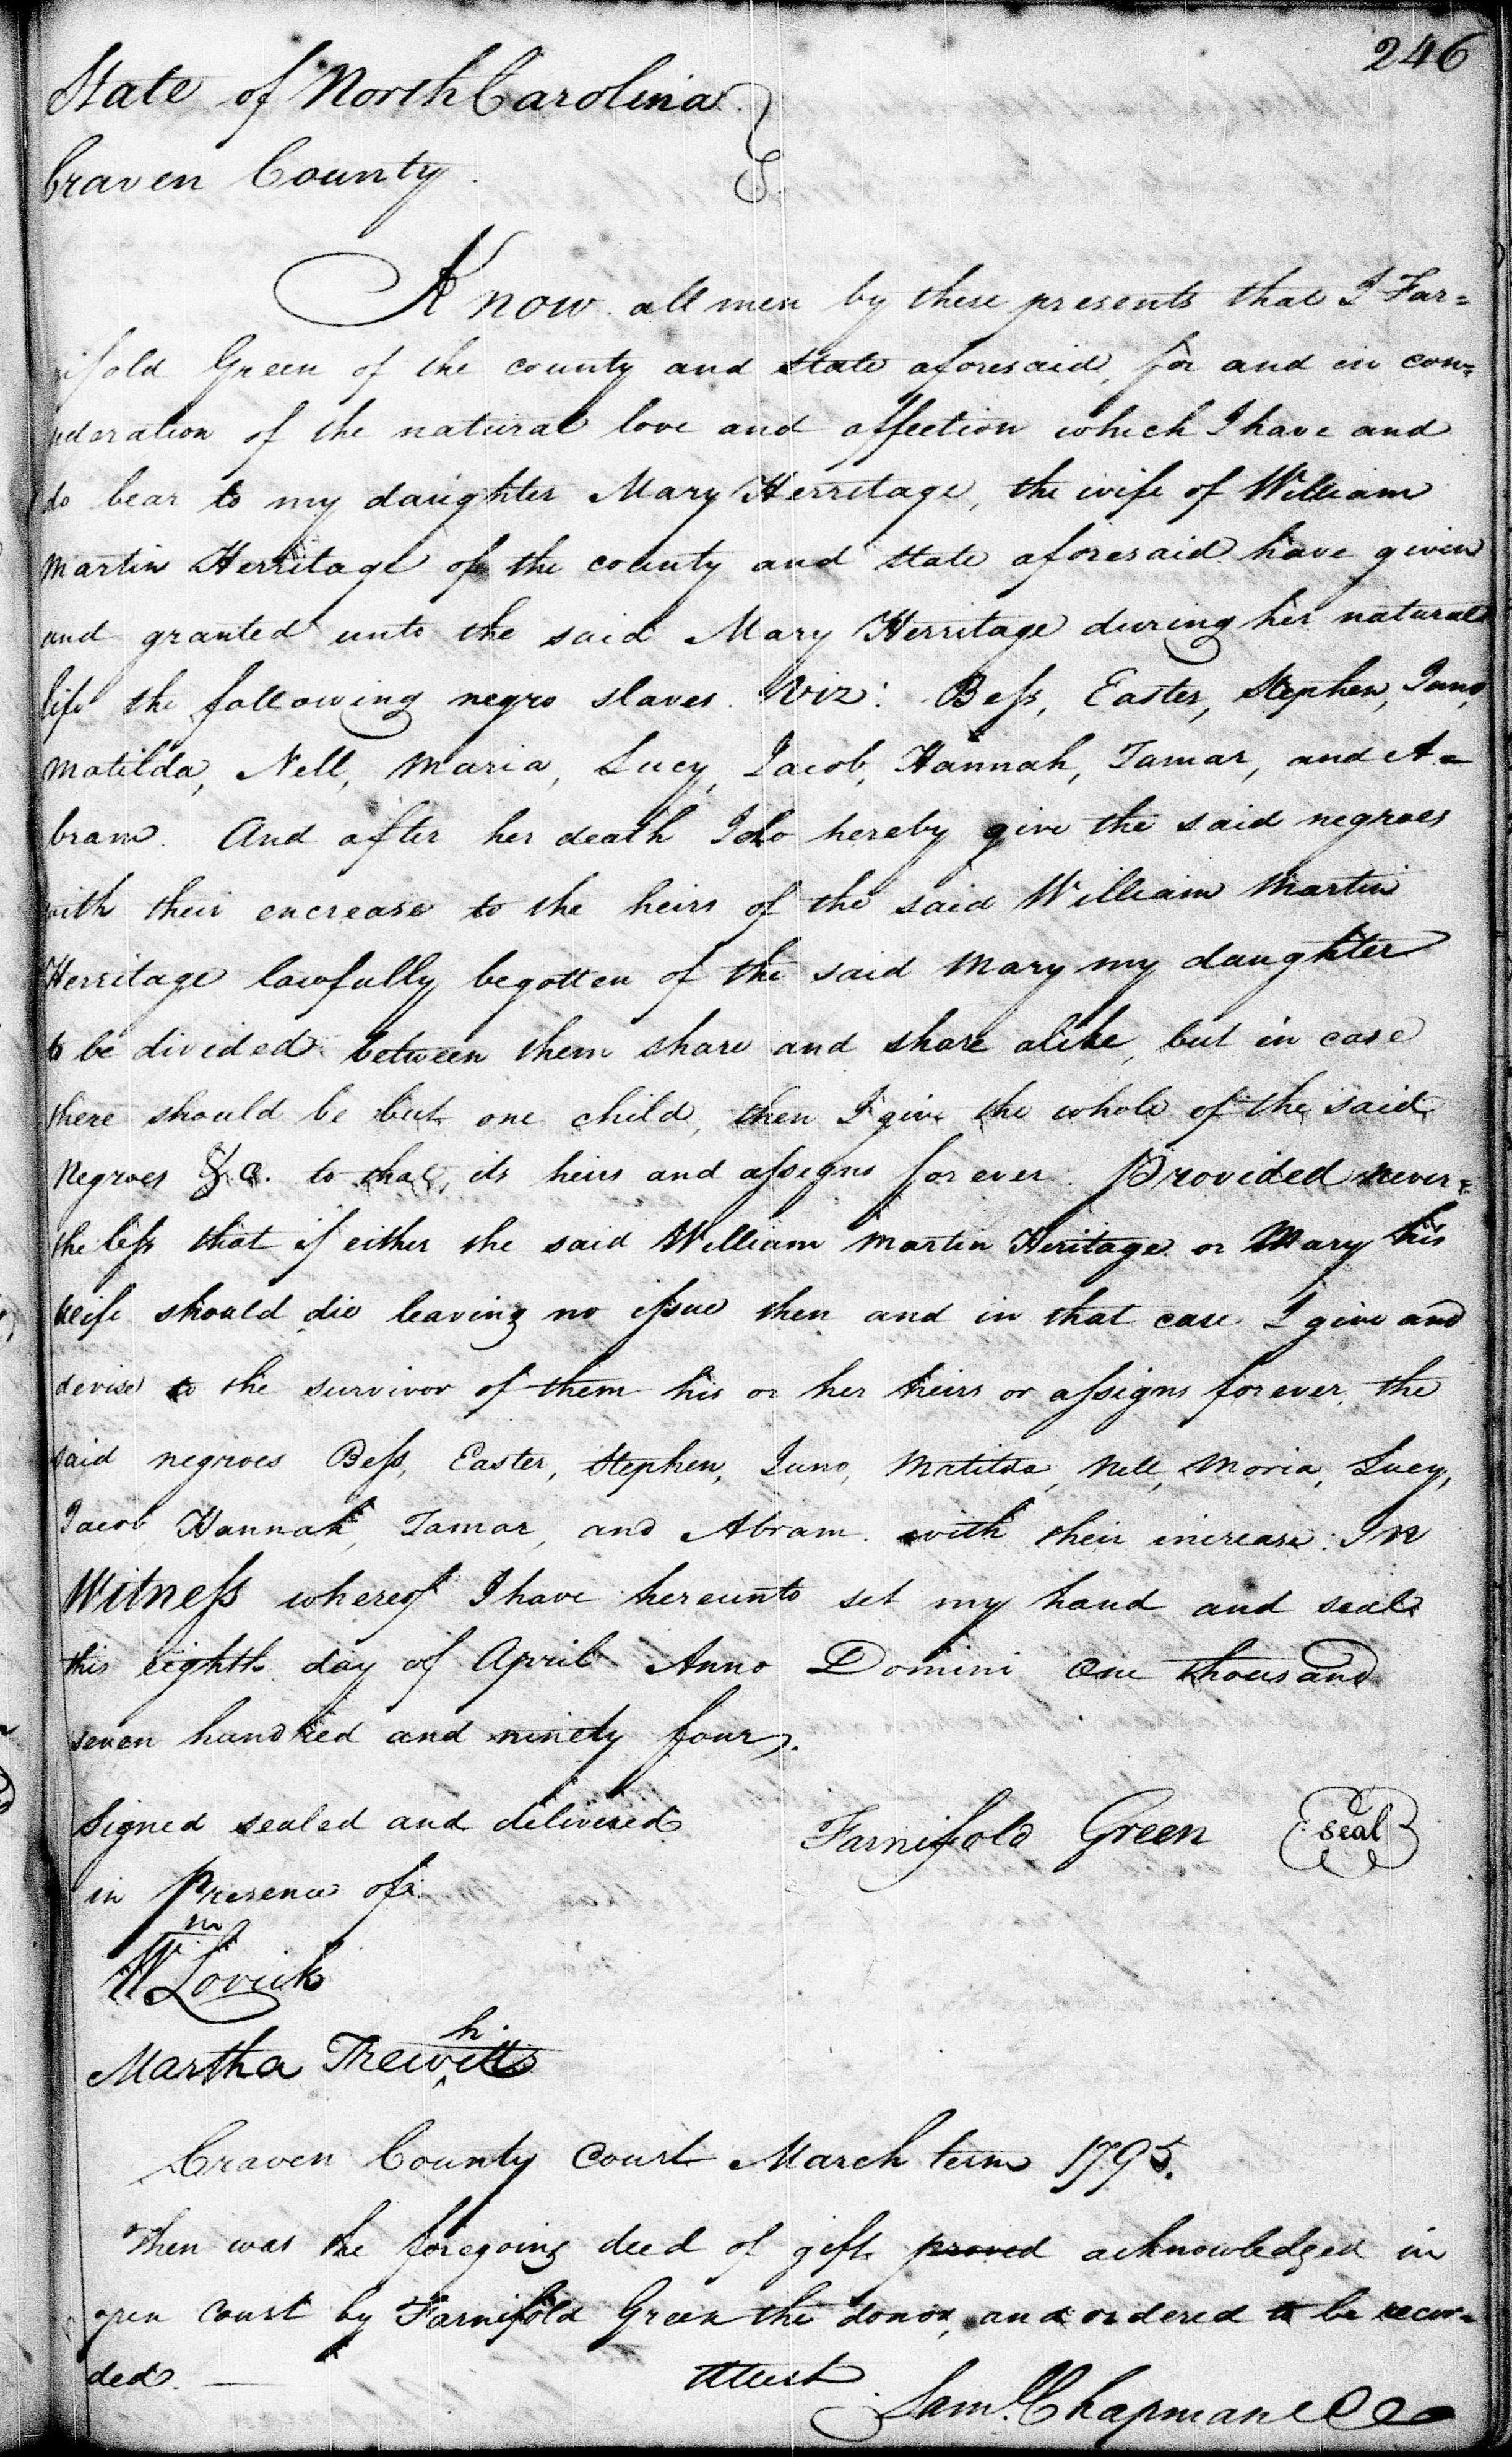 246
State of North Carolina
Craven County.
Know all men by these presents that I Far=
nifold Green of the county and state aforesaid, for and in con=
sideration of the natural love and affection which I have and
do bear to my daughter Mary Herritage, the wife of William
Martin Herritage of the county and state aforesaid have given
and granted unto the said Mary Herritage during her natural
life the following negro slaves. Viz: Bess, Easter, Stephen, Juno,
Matilda, Nell, Maria, Lucy, Jacob, Hannah, Tamar, and A=
bram. And after her death I do hereby give the said negroes
with their encrease to the heirs of the said William Martin
Herritage lawfully begotten of the said Mary my daughter
to be divided between them share and share alike, but in case
there should be but one child, then I give the whole of the said
Negroes &c. to that, its heirs and assigns for ever. Provided never=
the less that if either the said William Martin Heritage or Mary his
wife should die leaving no issue then and in that case I give and
devise to the survivor of them his or her heirs or assigns forever, the
said negroes Bess, Easter, Stephen, Juno, Matilda, Nell, Moria, Lucy,
Jacob, Hannah, Tamar, and Abram. with their increase: In
Witness whereof I have hereunto set my hand and seal
this eighth day of April Anno Domini One thousand
seven hundred and ninety four.
Signed sealed and delivered Farnifold Green seal
in Presence of
Wm Lovick
Martha Trewhitts
Craven County Court March term 1795.
Then was the foregoing deed of gift proved acknowledged in
open court by Farnifold Green the donor, and ordered to be recor=
ded. Attest
Saml. Chapman CC